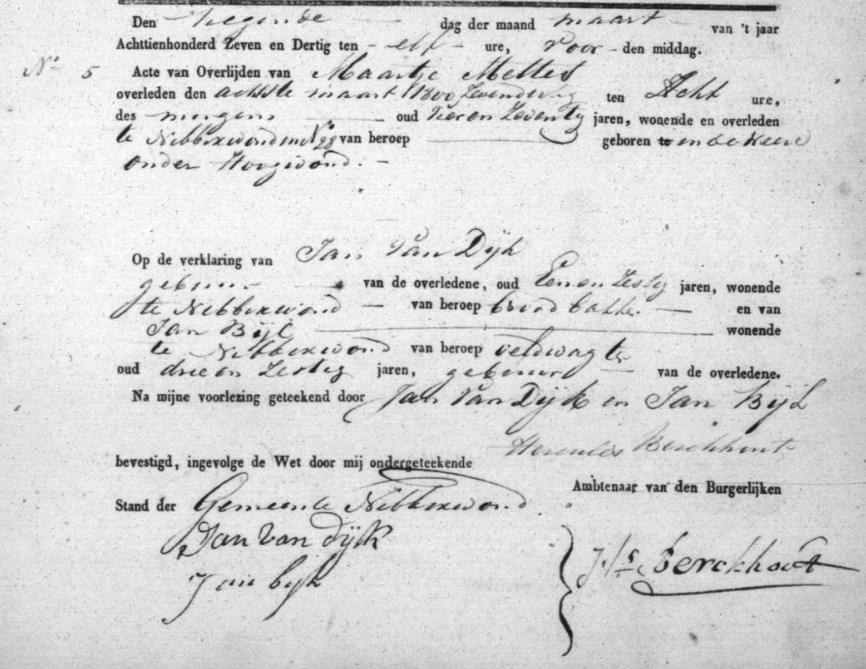 Den negende dag der maand maart van 't jaar
Achttienhonderd Zeven en Dertig ten elf ure, voor den middag.
No 5 Acte van Overlijden van Maartje Melles
overleden den achtste maart 1800 Zevendertig ten Acht ure,
des morgens oud vier en Zeventig jaren, wonende en overleden
te Nibbixwoud in No 28 van beroep geboren te in de Weere
onder Hoogwoud.
Op de verklaring van Jan Van Dijk
gebuur van de overledene, oud Een en Zestig jaren, wonende
te Nibbixwoud van beroep brood bakker en van
Jan Bijl wonende
te Nibbixwoud van beroep veldwagter
oud drie en Zestig jaren, gebuur van de overledene.
Na mijne voorlezing geteekend door Jan Van Dijk en Jan Bijl
Hercules Berckhout
bevestigd, ingevolge de Wet door mij ondergeteekende
Ambtenaar van den Burgerlijken
Stand der Gemeente Nibbixwoud
Jan van dijk
Jan bijl
Hs Berckhout